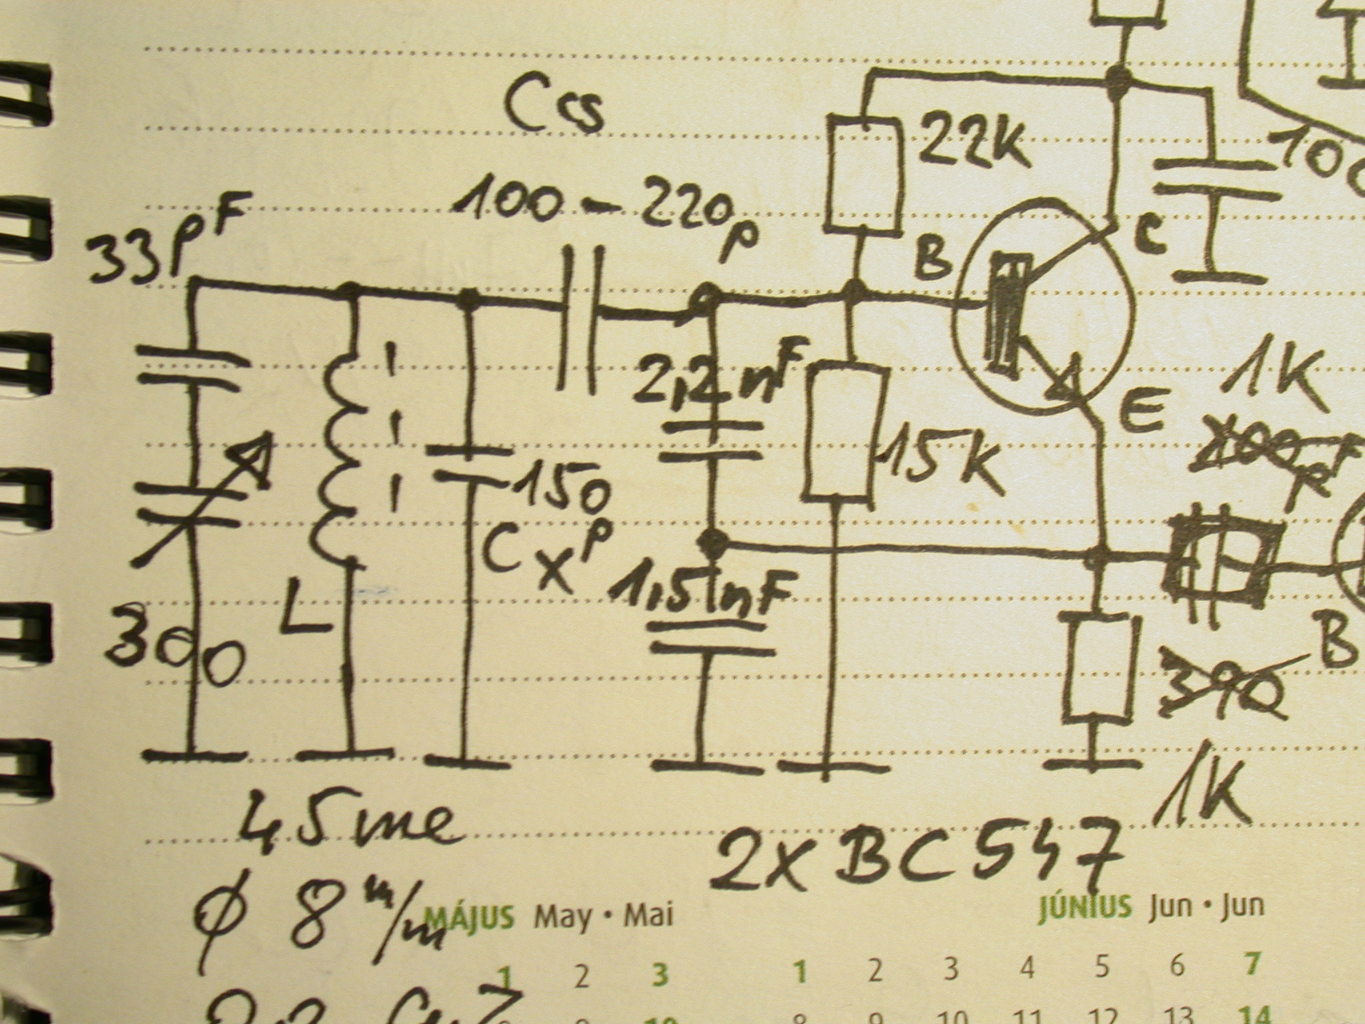 Ccs
22K
100
100 - 220p
33pF
B
C
2,2nF
1K
E
15K
200pF
150p
Cx
1,5nF
L
300
B
390
1K
45me
2x BC547
ø 8 m/m
MÁJUS May • Mai
JÚNIUS Jun • Jun
1 2 3
1 2 3 4 5 6 7
8 9 10
8 9 10 11 12 13 14